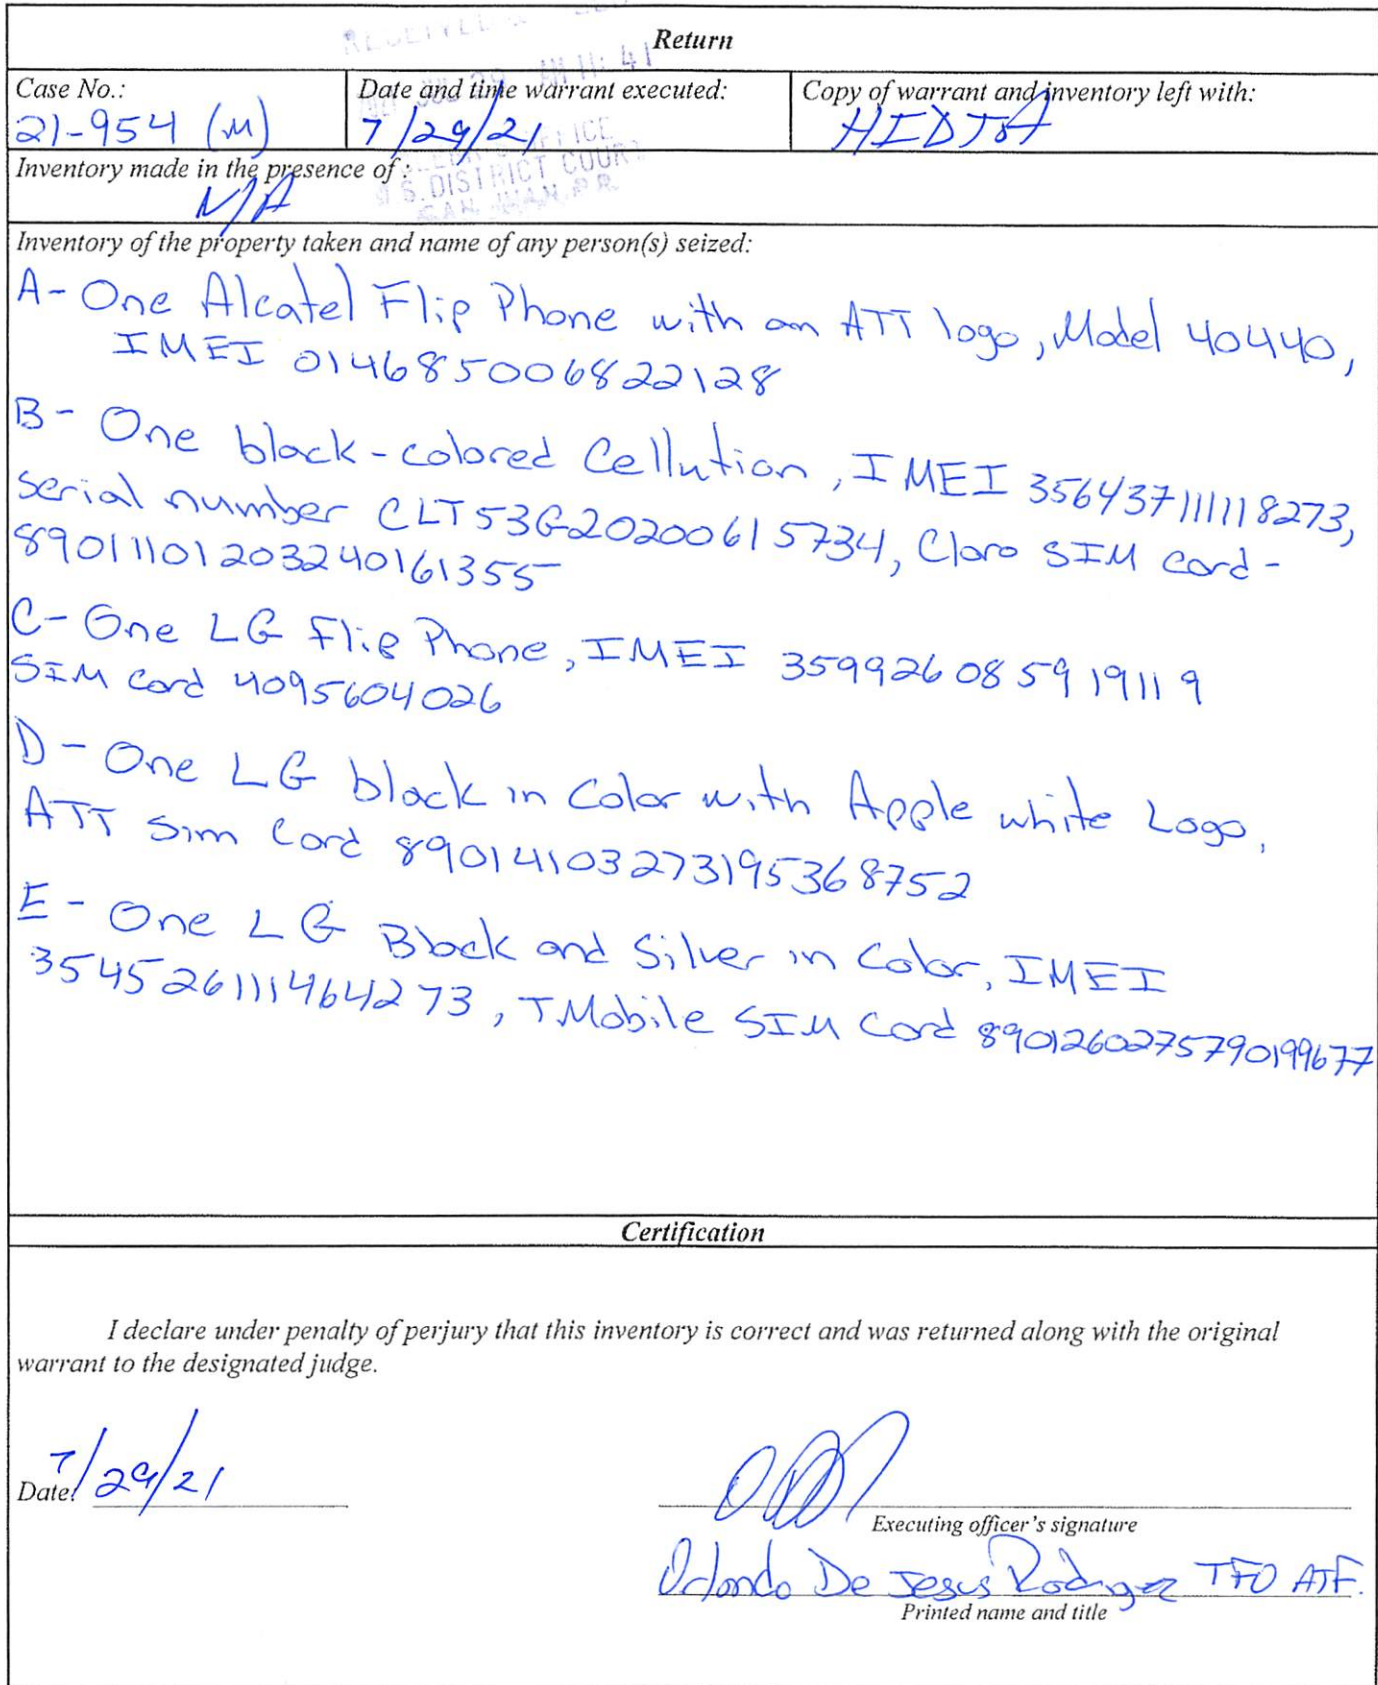 Return
Case No.:
21-954 (M)
Date and time warrant executed:
7/29/21
Copy of warrant and inventory left with:
Inventory made in the presence of :
N/A
AM 11: 41
S. DISTRICT COURT
SAN JUAN, P.R.
Inventory of the property taken and name of any person(s) seized:
A- One Alcatel Flip Phone with an ATT logo, Model 40440,
IMEI 014685006822128
B- One black-colored Cellution, IMEI 356437111118273,
Serial number CLT53G20200615734, Claro SIM card-
89011101203240161355
C- One LG Flip Phone, IMEI 359926085919119
SIM card 4095604026
D- One LG black in Color with Apple white Logo,
ATT Sim Card 89014103273195368752
E- One LG Black and Silver in Color, IMEI
354526111464273, TMobile SIM Card 8901260275790199677
Certification
I declare under penalty of perjury that this inventory is correct and was returned along with the original
warrant to the designated judge.
Date: 7/29/21
Executing officer's signature
Orlando De Jesus Rodriguez TFO ATF.
Printed name and title